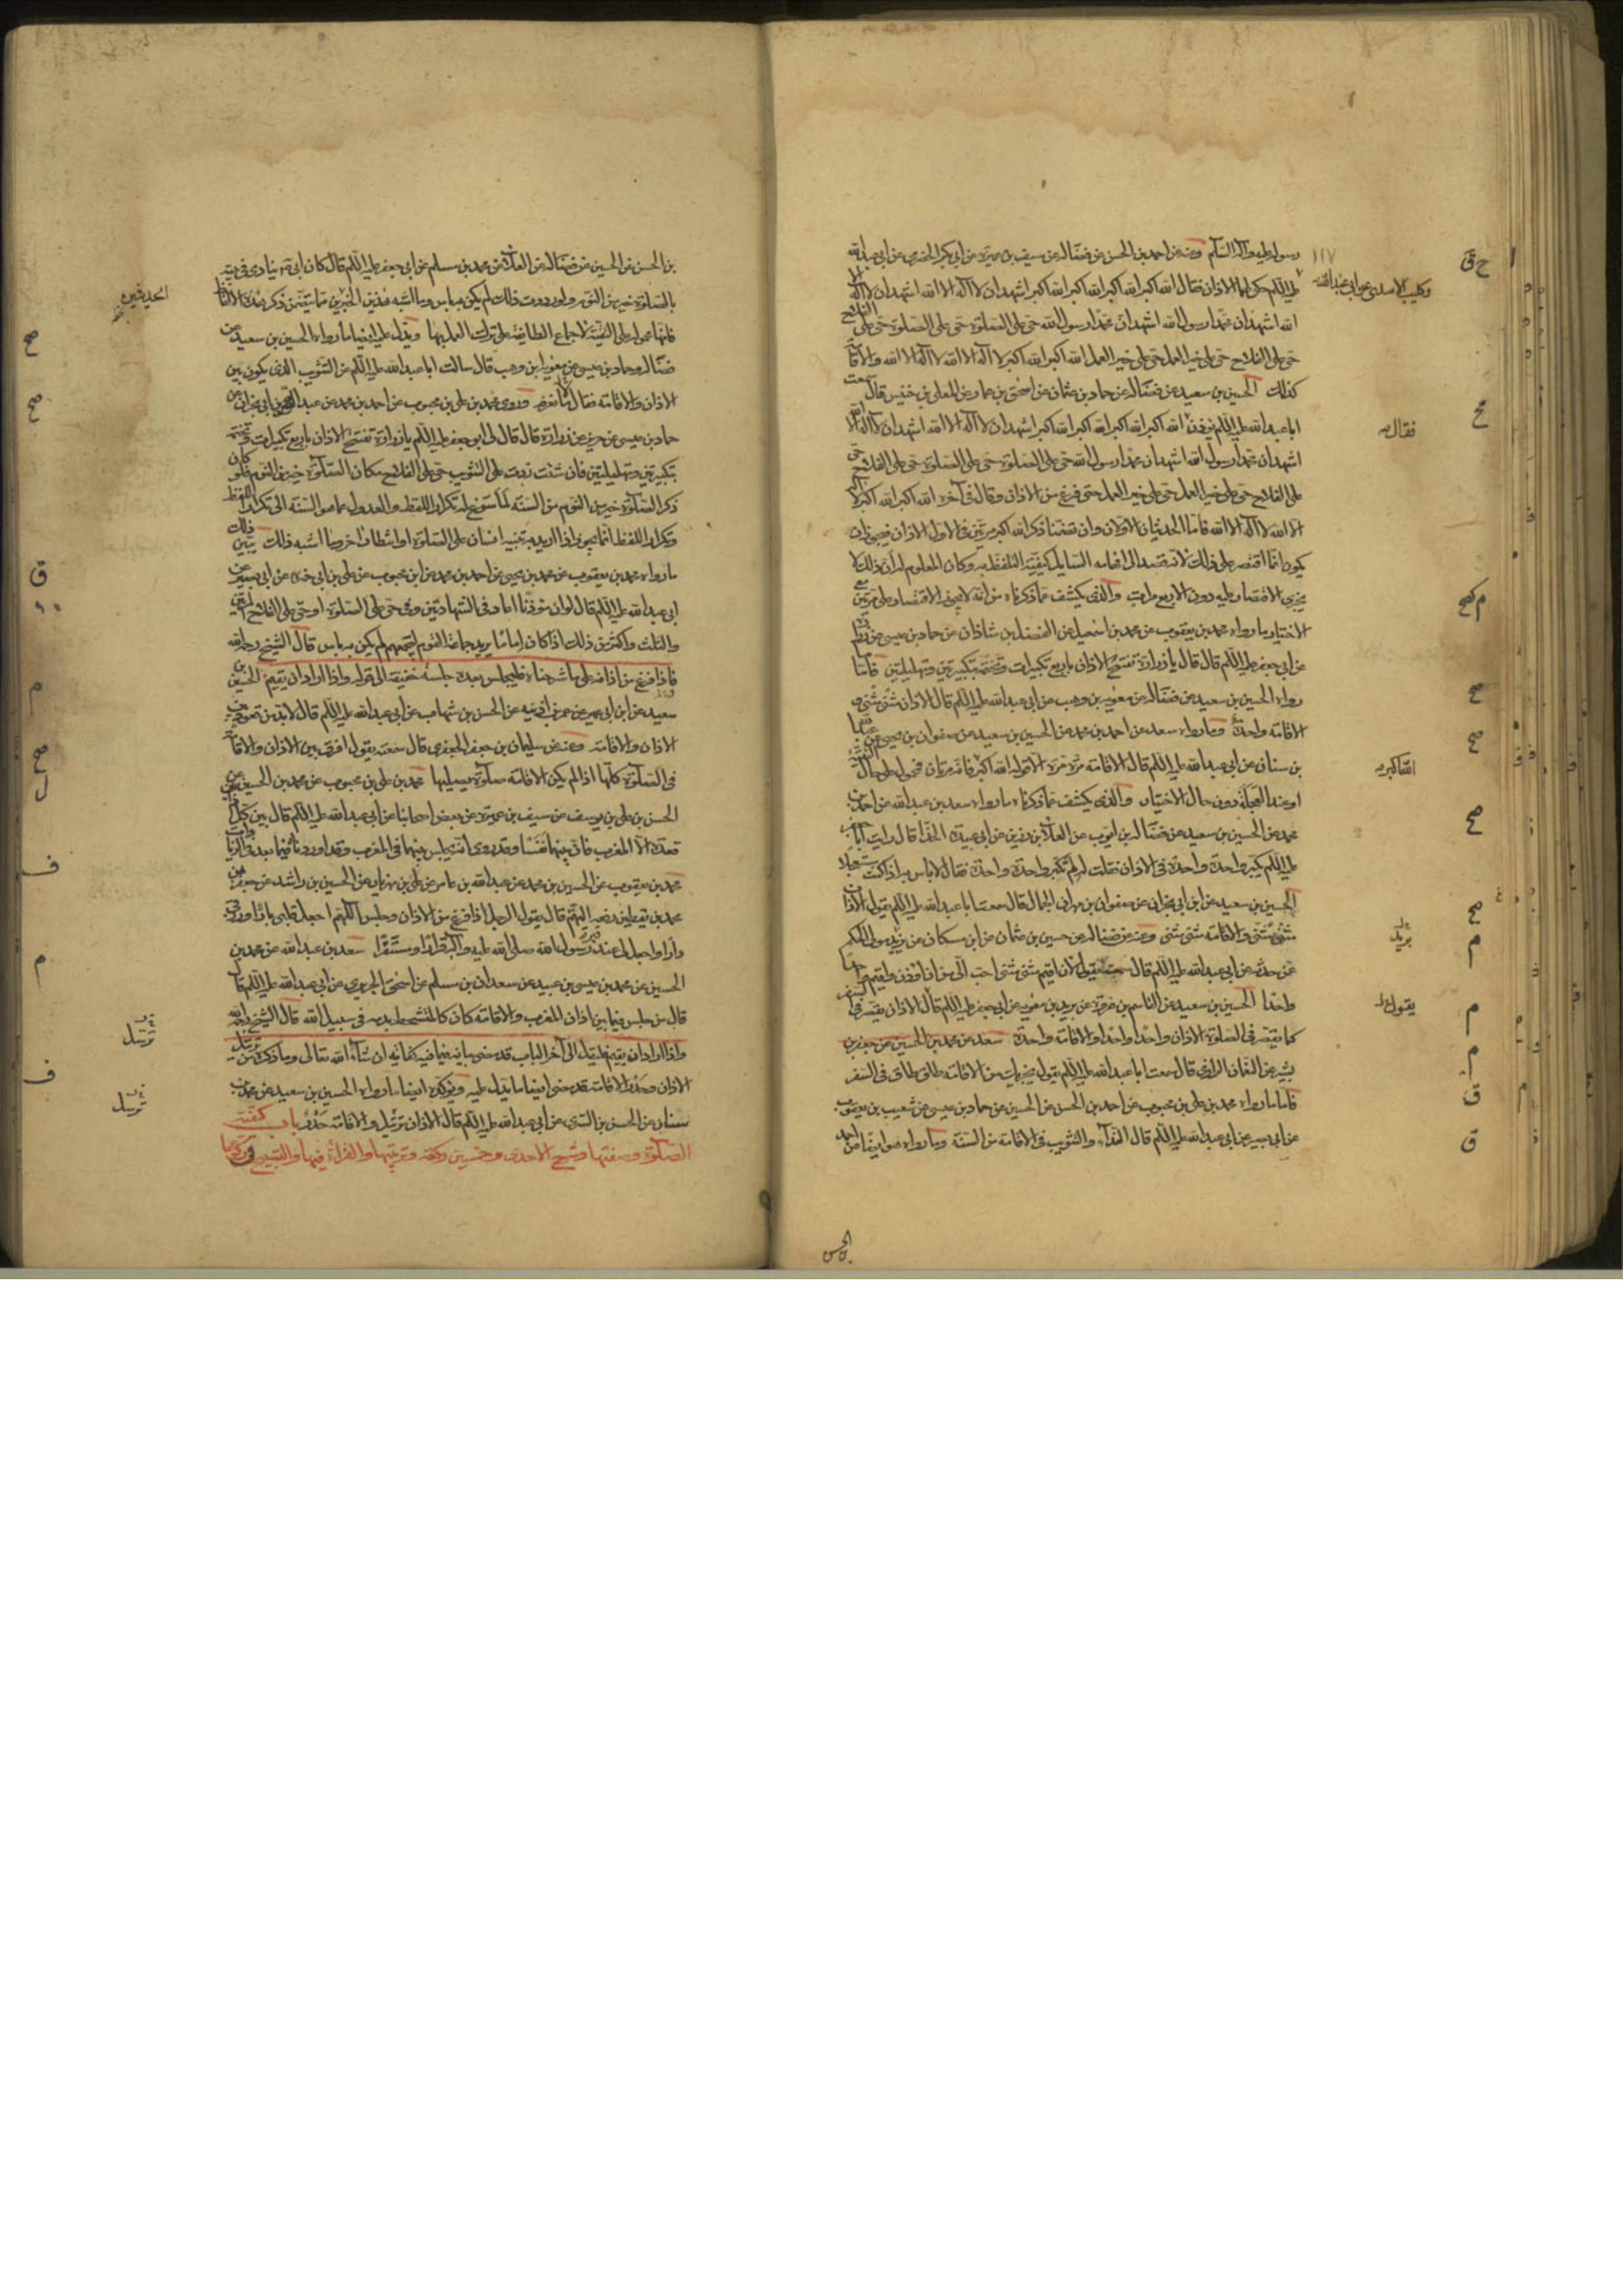 رسوله عليه وآله السلام وعنه عن احمد بن الحسن عن فضالة عن سيف بن عميرة عن ابي بكر الحضرمي عن ابي عبدالله
وكليب الاسدى عن ابى عبدالله
عليه السلم حكى لهما الاذان فقال الله اكبر الله اكبر الله اكبر الله اكبر اشهد ان لا اله الا الله اشهد ان لا اله الا
الله اشهد ان محمدا رسول الله اشهد ان محمدا رسول الله حى على الصلوة حى على الصلوة حى على الفلاح
حى على الفلاح حى على خير العمل حى على خير العمل الله اكبر الله اكبر لا اله الا الله لا اله الا الله والاقامة
كذلك الحسين بن سعيد عن فضالة عن حماد بن عثمان عن اسحق بن عمار عن المعلى بن خنيس قال سمعت
ابا عبدالله عليه السلم يؤذن الله اكبر الله اكبر الله اكبر الله اكبر اشهد ان لا اله الا الله اشهد ان لا اله الا الله
فقال
اشهد ان محمدا رسول الله اشهد ان محمدا رسول الله حى على الصلوة حى على الصلوة حى على الفلاح حى
على الفلاح حى على خير العمل حى على خير العمل حتى فرغ من الاذان وقال فى آخره الله اكبر الله اكبر لا
اله الا الله لا اله الا الله فاما الحديثان الاولان وان تضمنا ذكر الله اكبر مرتين فى اول الاذان فيجوز ان
يكون انما اقتصر على ذلك لانه قصد الى افهامه السايل كيفية التلفظ به وكان المعلوم له ان ذلك لا
يجزى الاقتصار عليه دون الاربع مرات والذى يكشف عما ذكرناه من انه لا يجوز الاقتصار على مرتين مع
الاختيار ما رواه محمد بن يعقوب عن محمد بن اسمعيل عن الفضل بن شاذان عن حماد بن عيسى عن
عن ابي جعفر عليه السلم قال قال يا زرارة تفتتح الاذان باربع تكبيرات وتختمه بتكبيرتين وتهليلتين فاما
رواه الحسين بن سعيد عن فضالة عن معوية بن وهب عن ابي عبدالله عليه السلم قال الاذان مثنى مثنى و
الاقامة واحدة وما رواه سعد عن احمد بن محمد عن الحسين بن سعيد عن صفوان بن يحيى عن عبدالله
بن سنان عن ابي عبدالله عليه السلم قال الاقامة مرة مرة الا قوله الله اكبر فانه مرتان فمحمول على حال
الله اكبر
او عند العجلة دون حال الاختيار والذى يكشف عما ذكرناه ما رواه سعد بن عبدالله عن احمد بن
محمد عن الحسين بن سعيد عن فضالة بن ايوب عن العلا بن رزين عن ابي عبيدة الحذا قال رايت ابا جعفر
عليه السلم يكبر واحدة واحدة فى الاذان فقلت له لم تكبر واحدة واحدة فقال لا باس به اذا كنت مستعجلا
الحسين بن سعيد عن ابن ابي نجران عن صفوان بن مهران الجمال قال سمعت ابا عبدالله عليه السلم يقول الاذان
مثنى مثنى والاقامة مثنى مثنى وعنه عن فضالة عن حسين بن عثمان عن ابن مسكان عن يزيد مولى الحكم
بريد
عمن حدثه عن ابي عبدالله عليه السلم قال سمعته يقول لان اقيم مثنى مثنى احب الى من ان اؤذن واقيم واحدا
واحدا الحسين بن سعيد عن القاسم بن عروة عن بريد بن معوية عن ابي جعفر عليه السلم قال الاذان يقصر فى السفر
يقول
كما تقصر فى الصلوة الاذان واحدا واحدا والاقامة واحدة سعد عن محمد بن الحسين عن جعفر بن
بشير عن النعمان الرازى قال سمعت ابا عبدالله عليه السلم يقول يجزيك من الاقامة طاق طاق فى السفر
فاما ما رواه محمد بن على بن محبوب عن احمد بن الحسن عن الحسين عن حماد بن عيسى عن شعيب بن يعقوب
عن ابي بصير عن ابي عبدالله عليه السلم قال النداء والتثويب فى الاقامة من السنة وما رواه هو ايضا عن احمد
بن الحسن
بن الحسن عن الحسين عن فضالة عن العلا عن محمد بن مسلم عن ابي جعفر عليه السلم قال كان ابي ينادى فى بيته
بالصلوة خير من النوم ولو رددت ذلك لم يكن به باس وما اشبه هذين الخبرين مما يتضمن ذكر هذه الالفاظ
الحديثين
فانها محمولة على التقية لاجماع الطايفة على ترك العمل بها ويدل عليه ايضا ما رواه الحسين بن سعيد عن
فضالة وحماد بن عيسى عن معوية بن وهب قال سالت ابا عبدالله عليه السلم عن التثويب الذى يكون بين
الاذان والاقامة فقال ما نعرفه وروى محمد بن على بن محبوب عن احمد بن محمد عن عبد الرحمن بن ابي نجران عن
حماد بن عيسى عن حريز عن زرارة قال قال لى ابو جعفر عليه السلم يا زرارة تفتتح الاذان باربع تكبيرات وتختمه
بتكبيرتين وتهليلتين فان شئت زدت على التثويب حى على الفلاح مكان الصلوة خير من النوم فلو كان
ذكر الصلوة خير من النوم من السنة لما سوغ له تكرار اللفظ والعدول عما هو السنة الى تكرار اللفظ
وتكرار اللفظ انما يجوز اذا اريد به تنبيه انسان على الصلوة او انتظار اخر وما اشبه ذلك يبين ذلك
ما رواه محمد بن يعقوب عن محمد بن يحيى عن احمد بن محمد عن ابن محبوب عن على بن ابي حمزة عن ابي بصير عن
ابي عبدالله عليه السلم قال لو ان مؤذنا اعاد فى الشهادتين وفى حى على الصلوة او حى على الفلاح المرتين
والثلث واكثر من ذلك اذا كان اماما يريد جماعة القوم ليجمعهم لم يكن به باس قال الشيخ رحمه الله
فاذا فرغ من اذانه على ما شرحناه فليجلس بعده جلسة خفيفة الى قوله واذا اراد ان يقيم الحسين بن
سعيد عن ابن ابي عمير عن عمر بن اذينة عن الحسن بن شهاب عن ابي عبدالله عليه السلم قال لا بد من قعود بين
الاذان والاقامة وعنه عن سليمان بن جعفر الجعفرى قال سمعته يقول افرق بين الاذان والاقامة
فى الصلوة كلها اذا لم يكن الاقامة صلوة يصليها محمد بن على بن محبوب عن محمد بن الحسين عن
الحسن بن على بن يوسف عن سيف بن عميرة عن بعض اصحابنا عن ابي عبدالله عليه السلم قال بين كل
قعدة الا المغرب فان بينهما نفسا وقد روى انه يجلس بينهما فى المغرب وقد اوردناه فيما بعد فى الزيادات
محمد بن يعقوب عن الحسين بن محمد عن عبدالله بن عامر عن على بن مهزيار عن الحسين بن راشد عن جعفر بن
محمد بن يقطين رفعه اليهم قال يقول الرجل اذا فرغ من الاذان وجلس اللهم اجعل قلبى بارا ورزقى
دارا واجعل لى عند قبر رسول الله صلى الله عليه وآله قرارا ومستقرا سعد بن عبدالله عن محمد بن
الحسين عن محمد بن عيسى بن عبيد عن سعدان بن مسلم عن اسحق الجريرى عن ابي عبدالله عليه السلم قال
قال من جلس فيما بين اذان المغرب والاقامة كان كالمتشحط بدمه فى سبيل الله قال الشيخ رحمه الله
واذا اراد ان يقيم فليقل الى آخر الباب قد مضى بيانه فيما فيه كفاية ان شاء الله تعالى وما ذكره من ترتيل
ترسل
الاذان وحدر الاقامة فقد مضى ايضا ما يدل عليه ويؤكده ايضا ما رواه الحسين بن سعيد عن محمد بن
سنان عن الحسن بن السرى عن ابي عبدالله عليه السلم قال الاذان ترتيل والاقامة حدر باب كيفية
ترسل
الصلوة وصفتها وشرح الاحدى وخمسين ركعة وترتيبها والقراءة فيها والتسبيح فى ركوعها